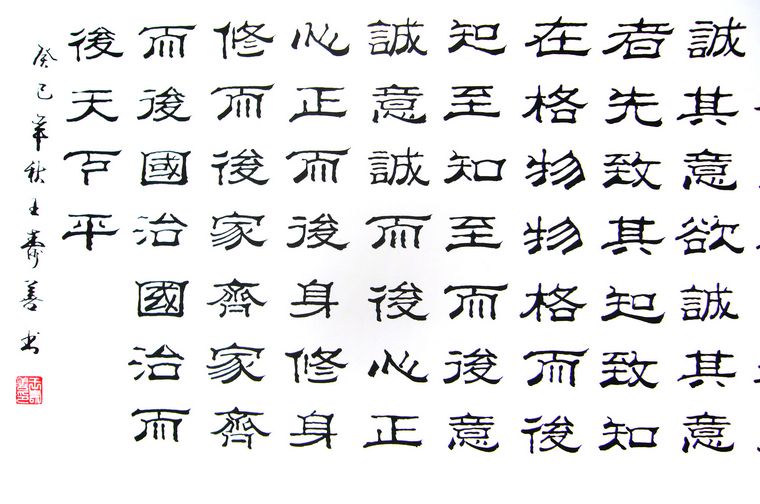 誠其意欲誠其意
者先致其知致知
在格物物格而後
知至知至而後意
誠意誠而後心正
心正而後身修身
修而後家齊家齊
而後國治國治而
後天下平
癸巳年秋王壽善书